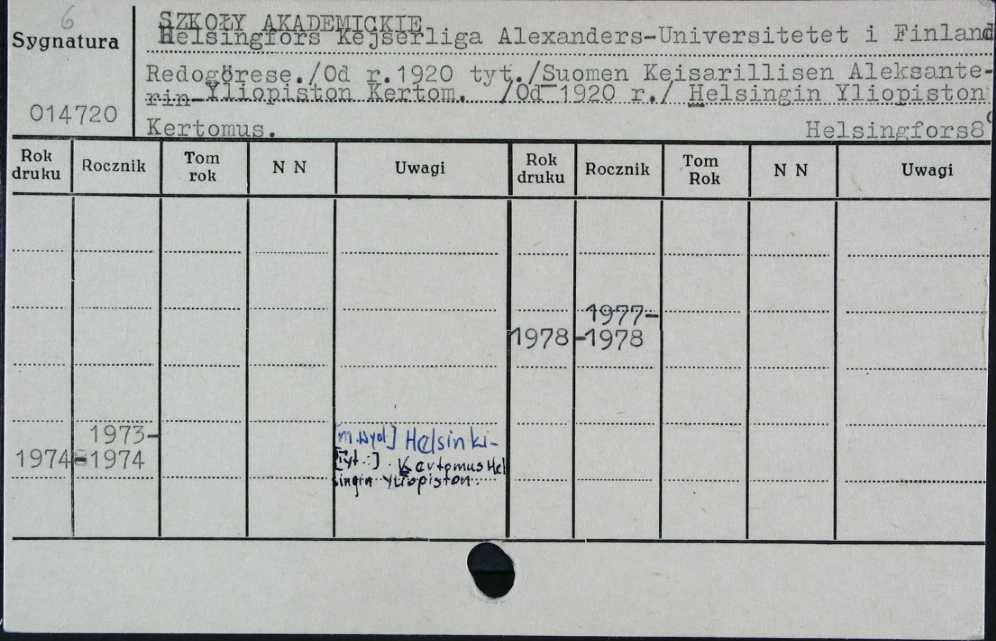 6
SZKOŁY AKADEMICKIE
Sygnatura
Helsingfors Kejserliga Alexanders-Universitetet i Finland
Redogörese./Od r.1920 tyt./Suomen Keisarillisen Aleksante-
rin-Yliopiston Kertom. /Od 1920 r./ Helsingin Yliopiston
014720
Kertomus. Helsingfors8°
Rok druku Rocznik Tom rok N N Uwagi Rok druku Rocznik Tom Rok N N Uwagi
1977-
1978-1978
1973-
1974-1974
[m.wyd] Helsinki-
[Tyt.:] Kertomus Hel
singin Yliopiston.